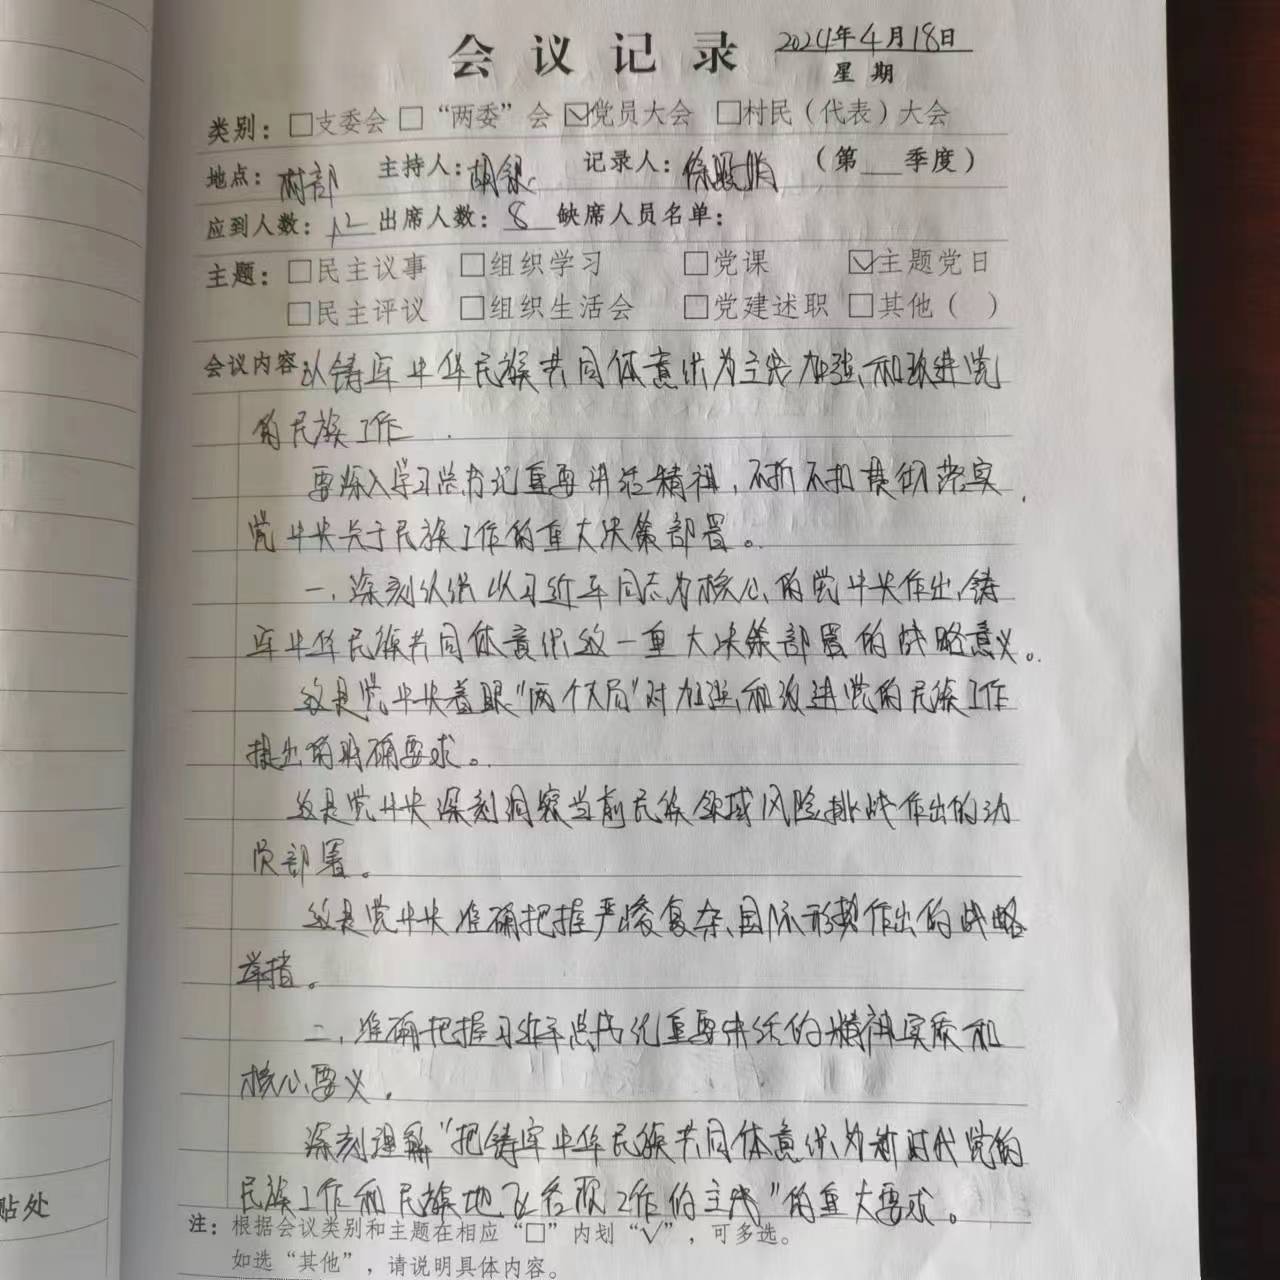 会议记录 2024年4月18日
星期
类别：□支委会 □“两委”会 ☑党员大会 □村民（代表）大会
地点：村部 主持人：胡银 记录人：徐 娟 （第__季度）
应到人数：12 出席人数：8 缺席人员名单：
主题：□民主议事 □组织学习 □党课 ☑主题党日
□民主评议 □组织生活会 □党建述职 □其他（ ）
会议内容：以铸牢中华民族共同体意识为主线 加强和改进党
的民族工作
要深入学习总书记重要讲话精神，不折不扣贯彻落实
党中央关于民族工作的重大决策部署。
一、深刻认识以习近平同志为核心的党中央作出铸
牢中华民族共同体意识这一重大决策部署的战略意义。
这是党中央着眼“两个大局”对加强和改进党的民族工作
提出的明确要求。
这是党中央深刻洞察当前民族领域风险挑战作出的动
员部署。
这是党中央准确把握严峻复杂国际形势作出的战略
举措。
二、准确把握习近平总书记重要讲话的精神实质和
核心要义。
深刻理解“把铸牢中华民族共同体意识为新时代党的
民族工作和民族地区各项工作的主线”的重大要求。
注：根据会议类别和主题在相应“□”内划“√”，可多选。
如选“其他”，请说明具体内容。
贴处